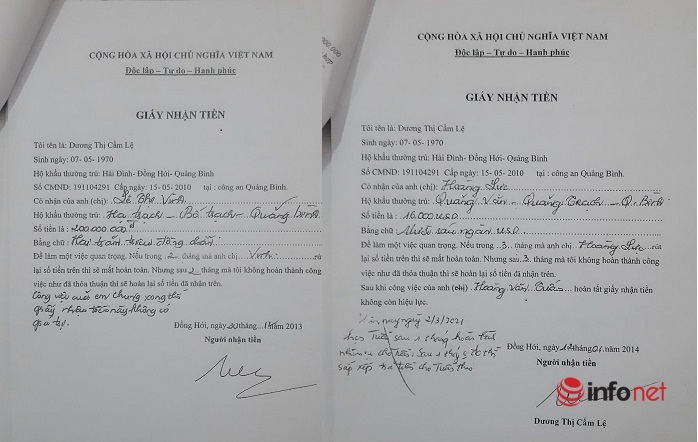 CỘNG HÒA XÃ HỘI CHỦ NGHĨA VIỆT NAM
Độc lập – Tự do – Hạnh phúc
GIẤY NHẬN TIỀN
Tôi tên là: Dương Thị Cẩm Lệ
Sinh ngày: 07- 05- 1970
Hộ khẩu thường trú: Hải Đình- Đồng Hới- Quảng Bình
Số CMND: 191104291 Cấp ngày: 15- 05- 2010 tại : công an Quảng Bình.
Có nhận của anh (chị): Lê Thế Vinh
Hộ khẩu thường trú: Hạ trạch – Bố trạch – Quảng bình
Số tiền là: 200.000.000đ
Bằng chữ: Hai trăm triệu đồng chẵn
Để làm một việc quan trọng. Nếu trong 2 tháng mà anh chị Vinh rút
lại số tiền trên thì sẽ mất hoàn toàn. Nhưng sau 2 tháng mà tôi không hoàn thành công
việc như đã thỏa thuận thì sẽ hoàn lại số tiền đã nhận trên.
Công việc của em Chung xong thì
giấy nhận tiền này không có
giá trị.
Đồng Hới, ngày 20 tháng 11 năm 2013
Người nhận tiền
CỘNG HÒA XÃ HỘI CHỦ NGHĨA VIỆT NAM
Độc lập – Tự do – Hạnh phúc
GIẤY NHẬN TIỀN
Tôi tên là: Dương Thị Cẩm Lệ
Sinh ngày: 07- 05- 1970
Hộ khẩu thường trú: Hải Đình- Đồng Hới- Quảng Bình
Số CMND: 191104291 Cấp ngày: 15- 05- 2010 tại : công an Quảng Bình.
Có nhận của anh (chị): Hoàng Lực
Hộ khẩu thường trú: Quảng Văn – Quảng Trạch – Q. Bình
Số tiền là: 16.000 USD
Bằng chữ: Mười sáu ngàn USD
Để làm một việc quan trọng. Nếu trong 3 tháng mà anh chị Hoàng Lực rút
lại số tiền trên thì sẽ mất hoàn toàn. Nhưng sau 3 tháng mà tôi không hoàn thành công
việc như đã thỏa thuận thì sẽ hoàn lại số tiền đã nhận trên.
Sau khi công việc của anh (chị) Hoàng Văn Tuấn hoàn tất giấy nhận tiền
không còn hiệu lực.
ngày 2/3/2021
Tuấn sau 1 tháng hoàn
sau 1 tháng
sắp xếp trả tiền cho Tuấn
Đồng Hới, ngày 12 tháng 01 năm 2014
Người nhận tiền
Dương Thị Cẩm Lệ
infonet